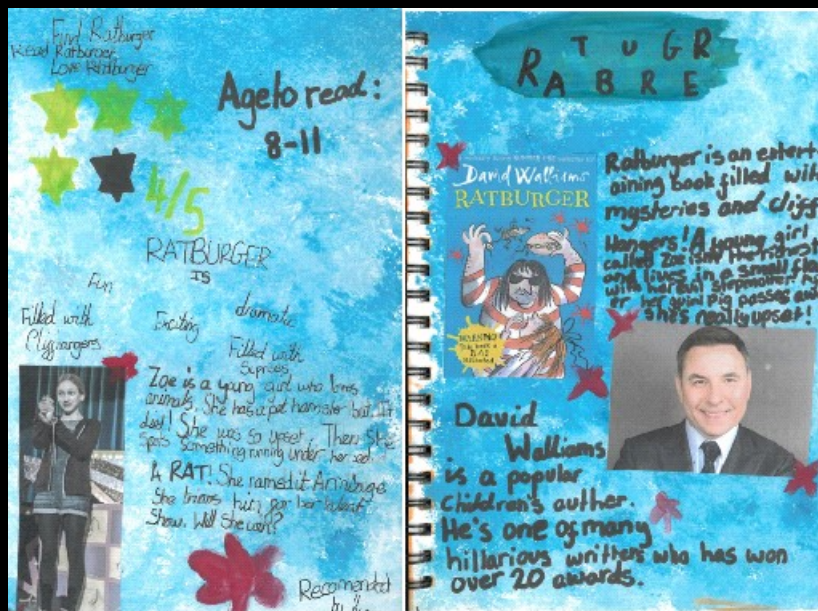 Find Ratburger
Read Ratburger
Love Ratburger
Age to read:
8-11
4/5
RATBURGER
IS
Fun
dramatic
Filled with
Cliffhangers
Exciting
Filled with
Suprises
Zoe is a young girl who loves
animals. She has a pet hamster but it
died! She was so upset. Then she
spots something running under her bed.
A RAT! She named it
She trains him for her talent
Show. Will She win?
Recomended
T U G R
R A B R E
David Walliams
RATBURGER
WARNING!
Ratburger is an entert-
aining book filled with
mysteries and cliff
Hangers! A young girl
called Zoe isn't the richest
and lives in a small flat
with her evil stepmother
her guini pig passes and
she's really upset!
David
Walliams
is a popular
children's auther.
He's one of many
hillarious writers who has won
over 20 awards.